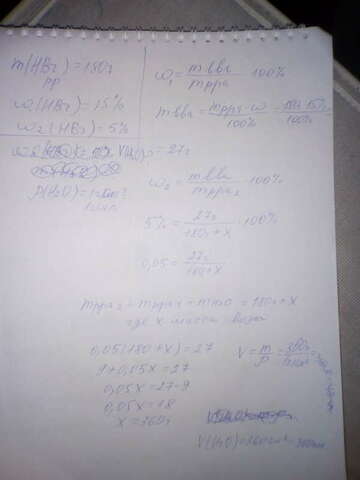 m(HBr) = 180г
рр
ω₁(HBr) = 15%
ω₂(HBr) = 5%
V(H₂O)
ρ(H₂O) =
ω₁ = mвва / mрра · 100%
mвва = mрра · ω / 100% = 180 · 15% / 100%
= 27г
ω₂ = mвва / mрра₂ · 100%
5% = 27г / 180г + x · 100%
0,05 = 27г / 180г + x
mрра₂ = mрра + mH₂O = 180г + x
где x масса воды
0,05(180 + x) = 27
9 + 0,05x = 27
0,05x = 27 - 9
0,05x = 18
x = 360г
V = m / ρ =
V(H₂O) =